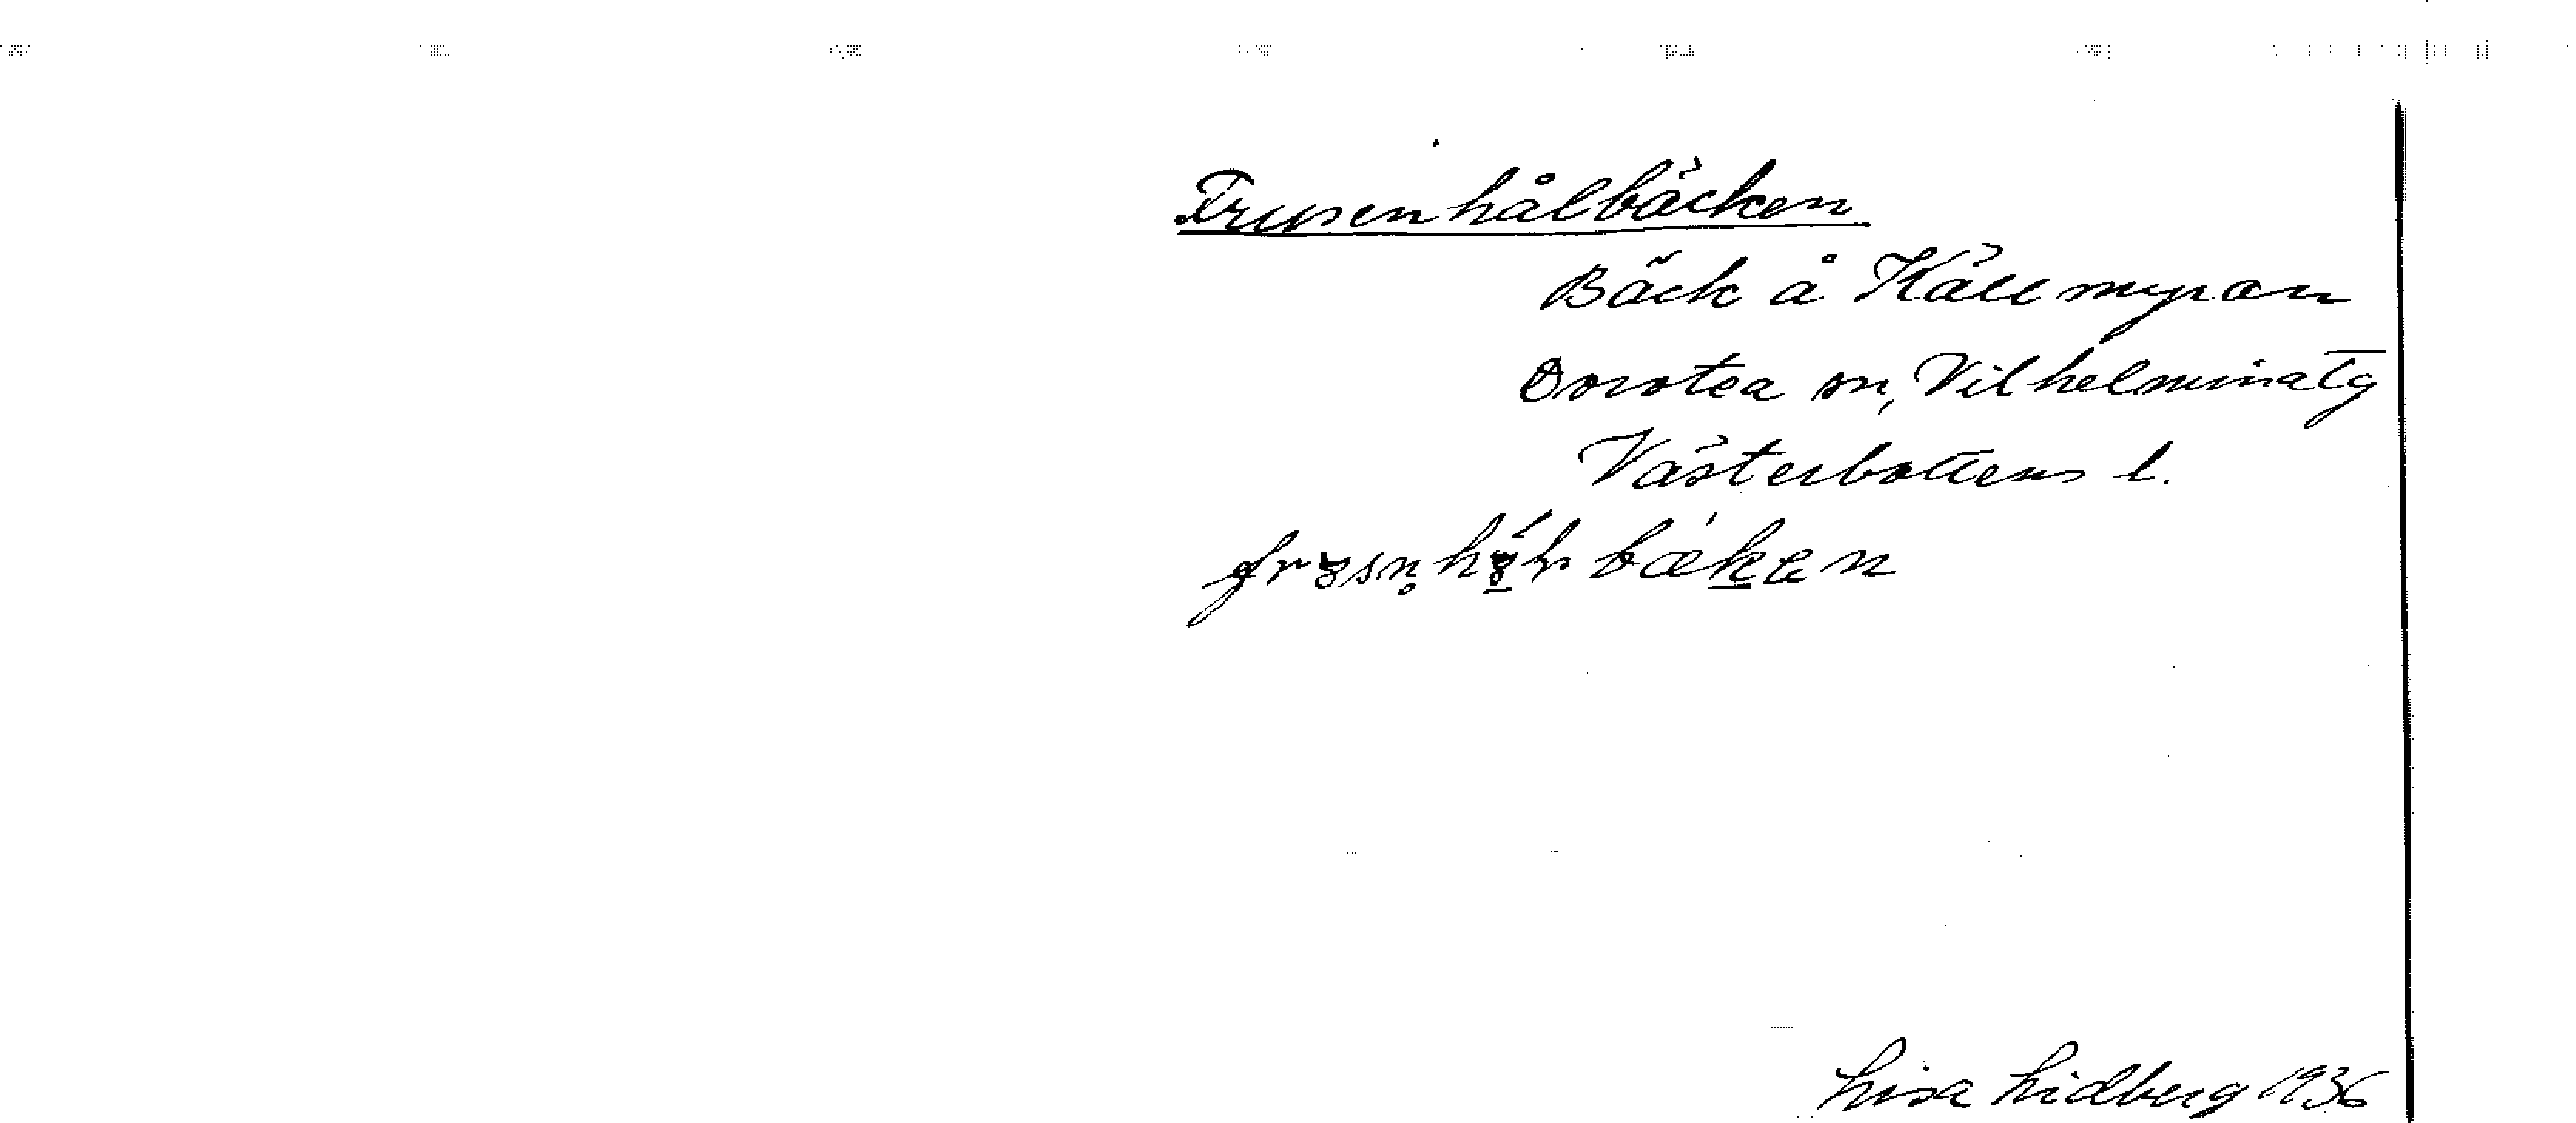 Frusenhålbäcken
Bäck å Källmyran
Dorotea sn, Vilhelmina tg
Västerbottens l.
Lisa Lidberg 1936